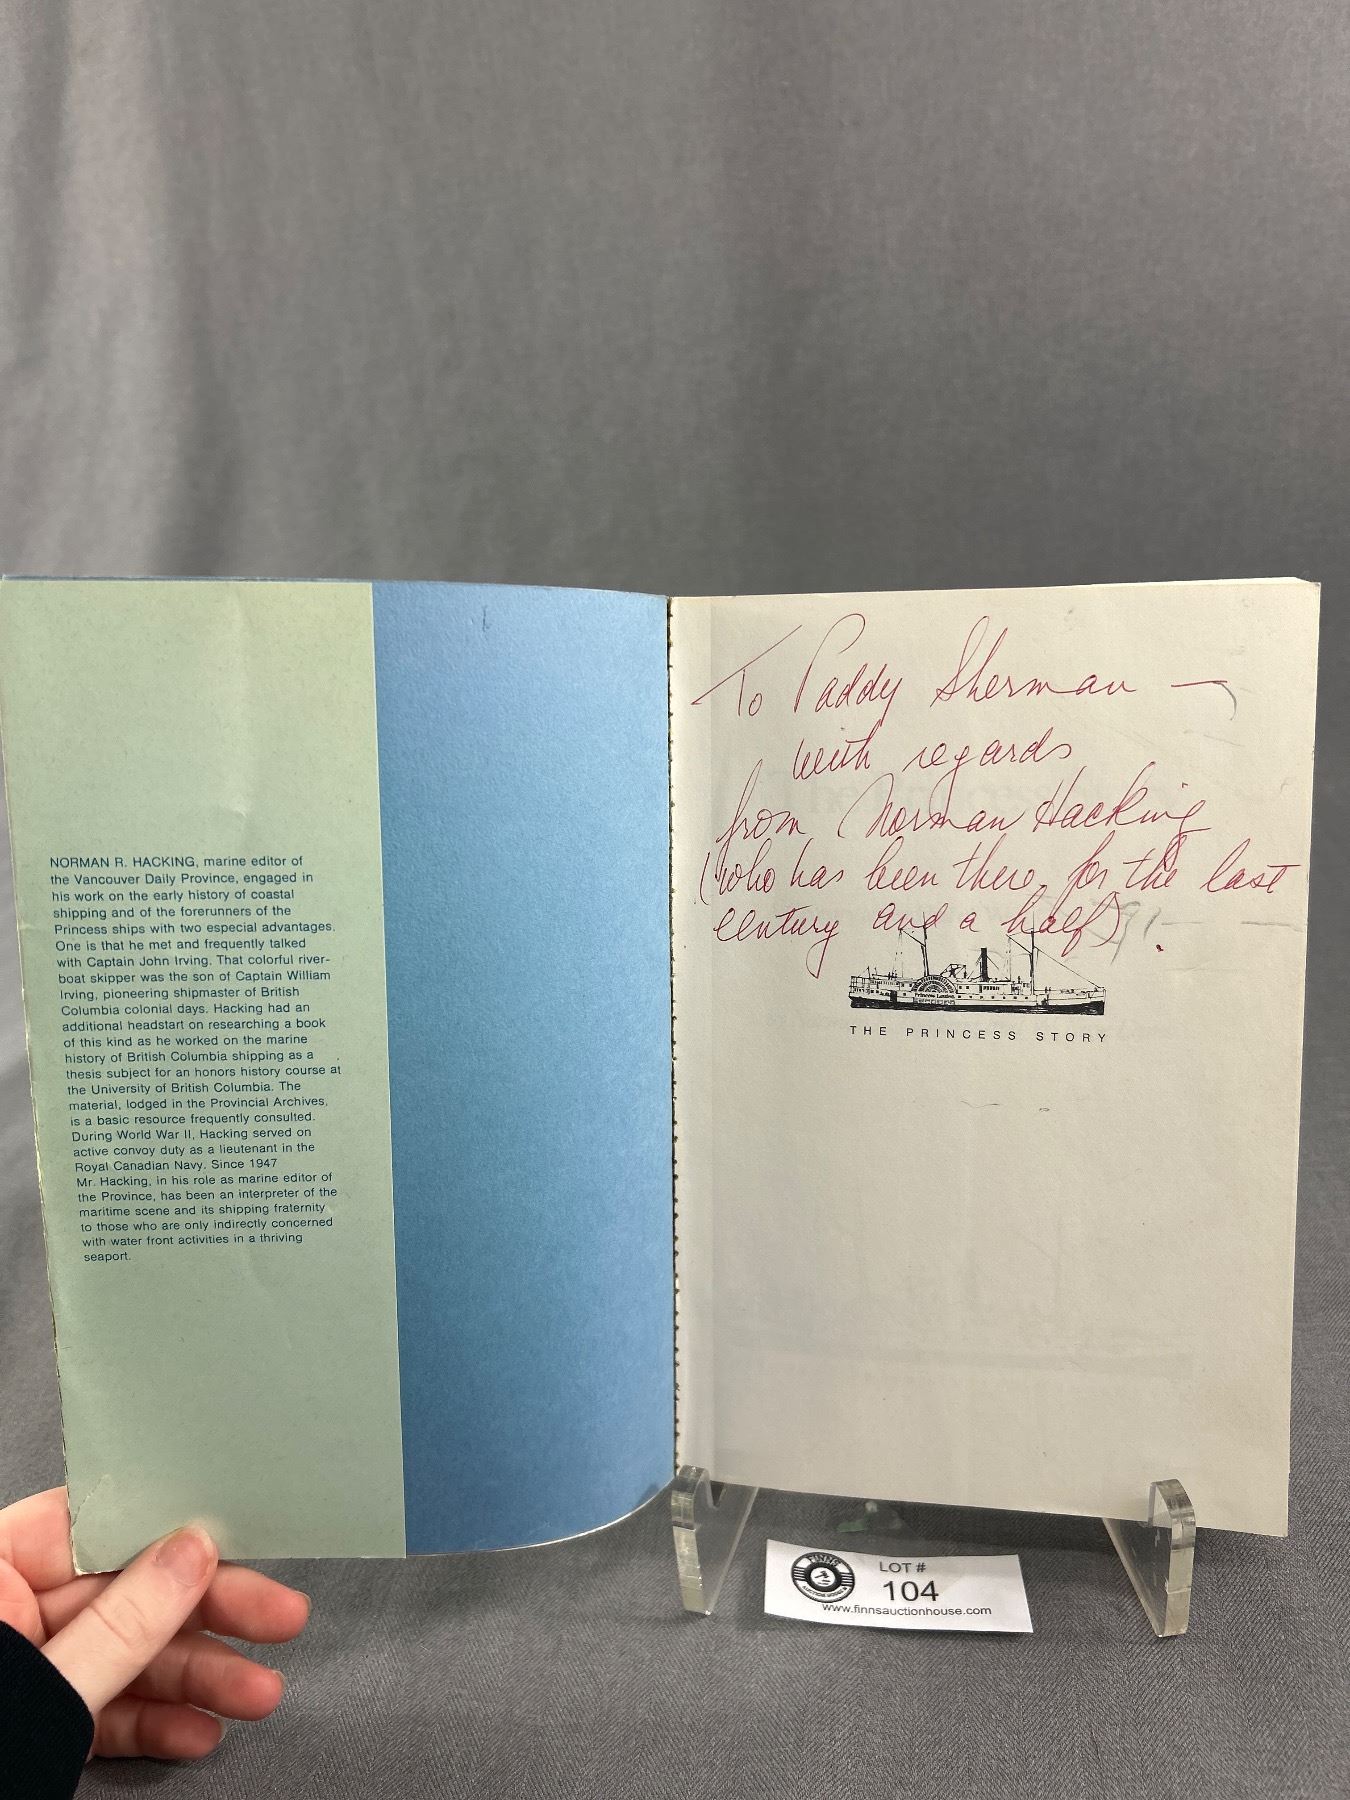 NORMAN R. HACKING, marine editor of
the Vancouver Daily Province, engaged in
his work on the early history of coastal
shipping and of the forerunners of the
Princess ships with two especial advantages.
One is that he met and frequently talked
with Captain John Irving. That colorful river-
boat skipper was the son of Captain William
Irving, pioneering shipmaster of British
Columbia colonial days. Hacking had an
additional headstart on researching a book
of this kind as he worked on the marine
history of British Columbia shipping as a
thesis subject for an honors history course at
the University of British Columbia. The
material, lodged in the Provincial Archives,
is a basic resource frequently consulted.
During World War II, Hacking served on
active convoy duty as a lieutenant in the
Royal Canadian Navy. Since 1947
Mr. Hacking, in his role as marine editor of
the Province, has been an interpreter of the
maritime scene and its shipping fraternity
to those who are only indirectly concerned
with water front activities in a thriving
seaport.
To Paddy Sherman —
with regards
from Norman Hacking
(who has been there for the last
century and a half).
Princess Louise
THE PRINCESS STORY
FINNS
AUCTION HOUSE
LOT #
104
www.finnsauctionhouse.com